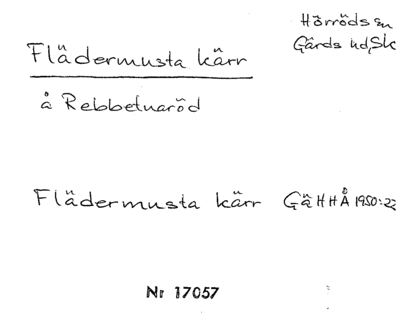 Hörröds sn
Gärds hd, Sk
Flädermusta kärr
å Rebbetuaröd
Flädermusta kärr Gä H H Å 1950:22
Nr 17057